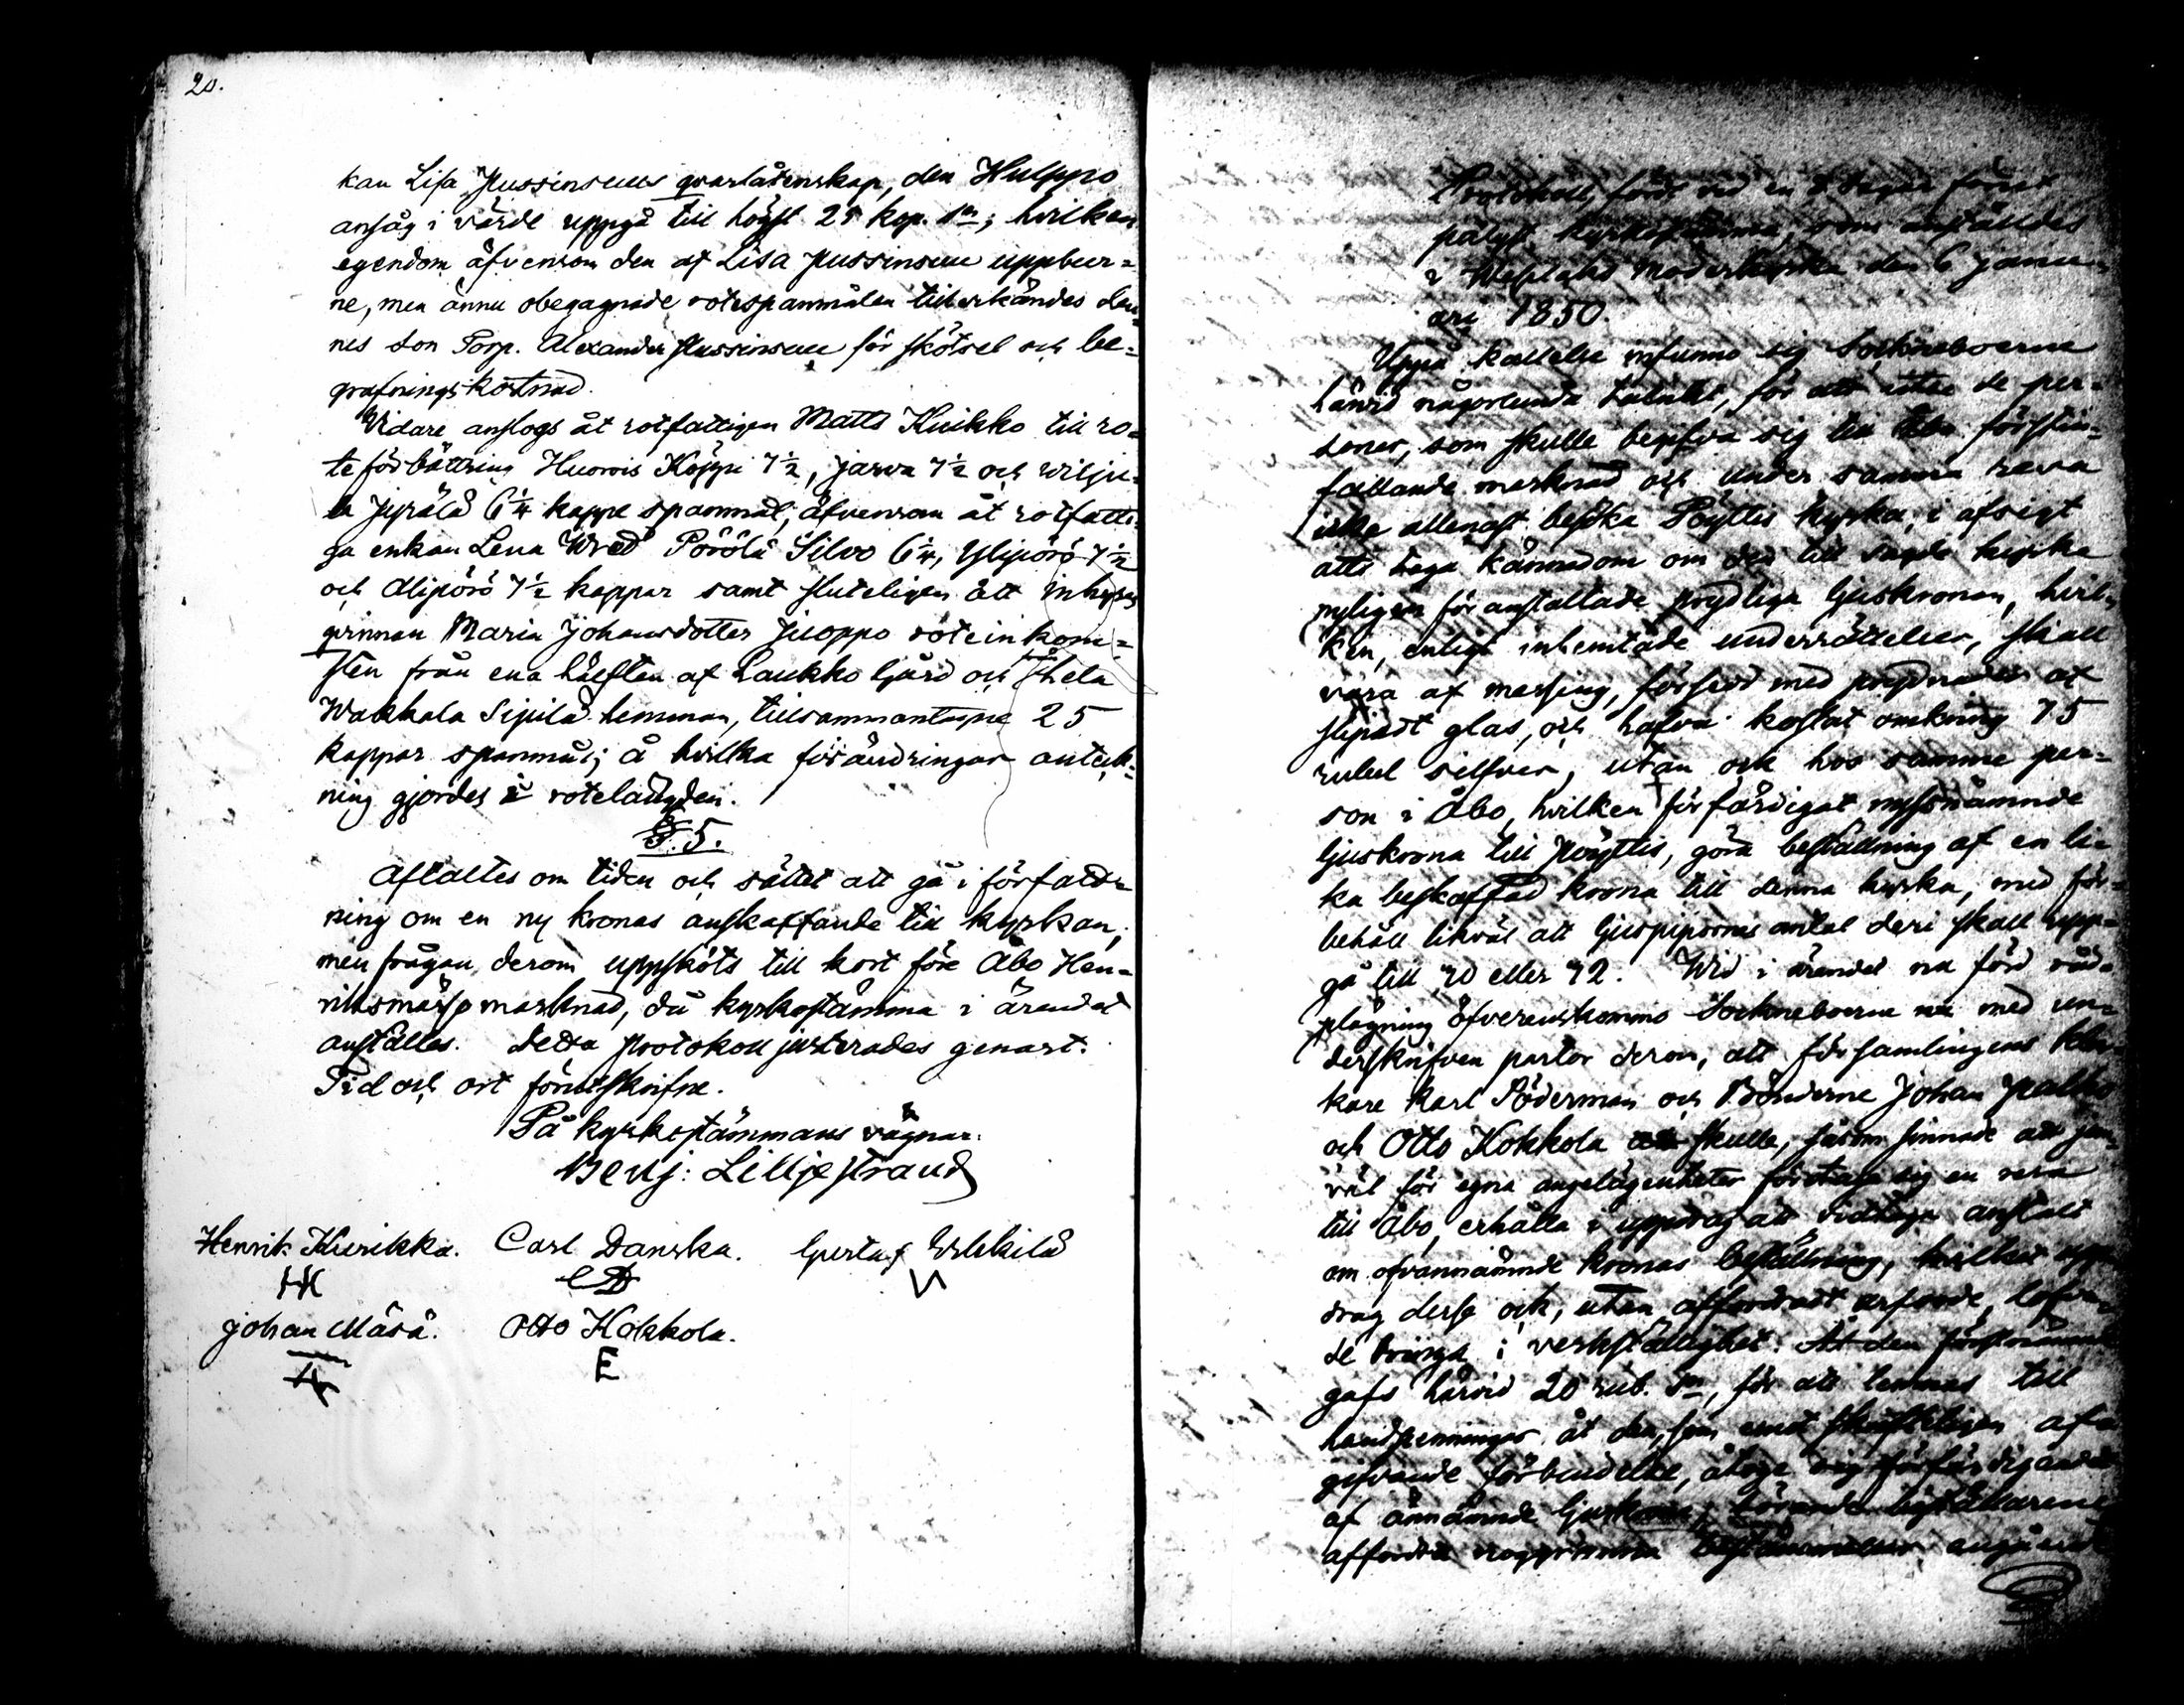 20.
kan Lisa Jussinsuus qvarlåtenskap, den Hulppo
ansåg i värde uppgå till högst 25 kop. Sr; hvilken
egendom äfvensom den af Lisa Jussinsuu uppbur=
ne, men ännu obegagnade rotespanmålen tillerkändes den=
nes Son Torp. Alexander Jussinsuu för skötsel och be=
grafningskostnad.
Vidare anslogs åt rotfattigen Matts Kuikko till ro=
teförbättring Huovis Köppi 7½, Jarva 7½ och
Jyrälä 6¼ kappe spanmål, äfvensom åt rotfatti=
ga enkan Lena Wred Pöölä Silvo 6¼, Ylipörö 7½
och Alipörö 7½ kappar samt sluteligen åt inhyses
qvinnan Maria Johansdotter Juoppo roteinkom=
sten från ena hälften af Laukko Ijärd och hela
Wakkala Sipilä hemman, tillsammantagne 25
kappar spanmål; å hvilka förändringar anteck=
ning gjordes i rotelängden.
§. 5.
Aftaltes om tiden och sättet att gå i författ=
ning om en ny kronas anskaffande till kyrkan,
men frågan derom uppsköts till kort före Åbo Hen=
riksmässo marknad, då kyrkostämma i ärendet
anställes. Detta Protokoll justerades genast.
Tid och ort förutskrifne.
På kyrkostämmans vägnar:
Benj: Lilljestrand
Henrik Kurikka. Carl Danska. Gustaf Wlkkilä
HK CD
Johan Mäsä. Otto Kokkola.
E
Protokoll, fördt vid en 8 dagar förut
pålyst kyrkostämma, som anställdes
i Moderkyrka den 6 Janu=
ari 1850.
Uppå kallelse infunno sig Sockneboerne
härvid någorlunda talrikt, för att utse de per=
soner, som skulle begifva sig till Åbo förstin=
fallande marknad och under samma resa
icke allenast besöka Pöyttis kyrka, i afsigt
att taga kännedom om den till sagde kyrka
nyligen föranstaltade prydliga ljuskronan, hvil=
ken, enligt inhemtade underrättelser, skall
vara af messing, försedd med prydnader af
slipadt glas, och hafva kostat omkring 75
rubel silfver, utan ock hos samme per=
son i Åbo, hvilken förfärdigat nyssnämnde
ljuskrona till Pöyttis, göra beställning af en li=
ka beskaffad krona till denna kyrka, med för=
behåll likväl att ljuspipornes antal deri skall upp=
gå till 70 eller 72. Wid i ärendet nu förd råd=
plägning öfverenskommo Sockneboerne nu med un=
derskrifven pastor derom, att församlingens kloc=
kare Karl Söderman och Bönderne Johan
och Otto Kokkola skulle, såsom sinnade att jem=
väl för egna angelägenheter företaga sig en resa
till Åbo, erhålla i uppdrag att vidtaga anstalt
om ofvannämnde kronas beställning, hvilket upp=
drag desse ock, utan affordradt arfvode, lofva=
de bringa i verkställighet. Åt den förstnämnde
gafs härvid 20 rub. Sr, för att lemnas till
handpenningar åt den, som emot skriftligen af=
gifvande förbindelse, åtoge sig förfärdigandet
af ännämnde ljuskrona, börande beställarene
affordra noggranna angående